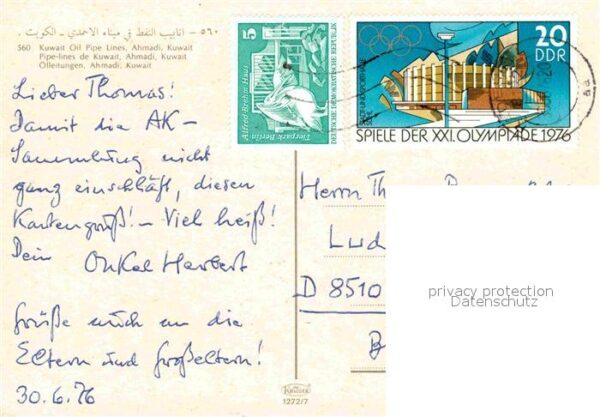 ٥٦٠ - انابيب النفط في ميناء الاحمدي - الكويت .
560 Kuwait Oil Pipe Lines, Ahmadi, Kuwait
Pipe-lines de Kuwait, Ahmadi, Kuwait
Olleitungen, Ahmadi, Kuwait
5
Alfred-Brehm-Haus
Tierpark Berlin
DEUTSCHE DEMOKRATISCHE REPUBLIK
20
DDR
SPIELE DER XXI. OLYMPIADE 1976
Lieber Thomas!
Damit die AK-
Sammlung nicht
ganz einschläft, diesen
Kartengruß! - Viel heiß!
Dein
Onkel Herbert
Grüße auch an die
Eltern und Großeltern!
30.6.76
Herrn Th
Lud
D 8510
privacy protection
Datenschutz
Krüger
1272/7